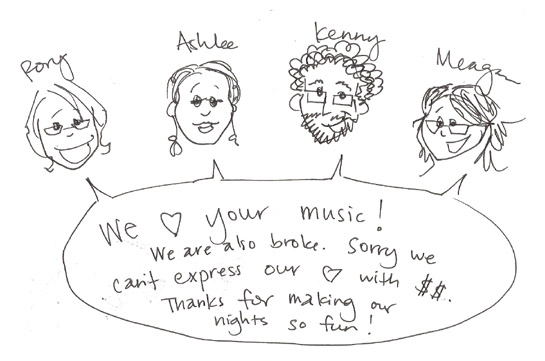 Rory
Ashlee
Kenny
Meagan
We ♡ your music!
We are also broke. Sorry we
can't express our ♡ with $$.
Thanks for making our
nights so fun!